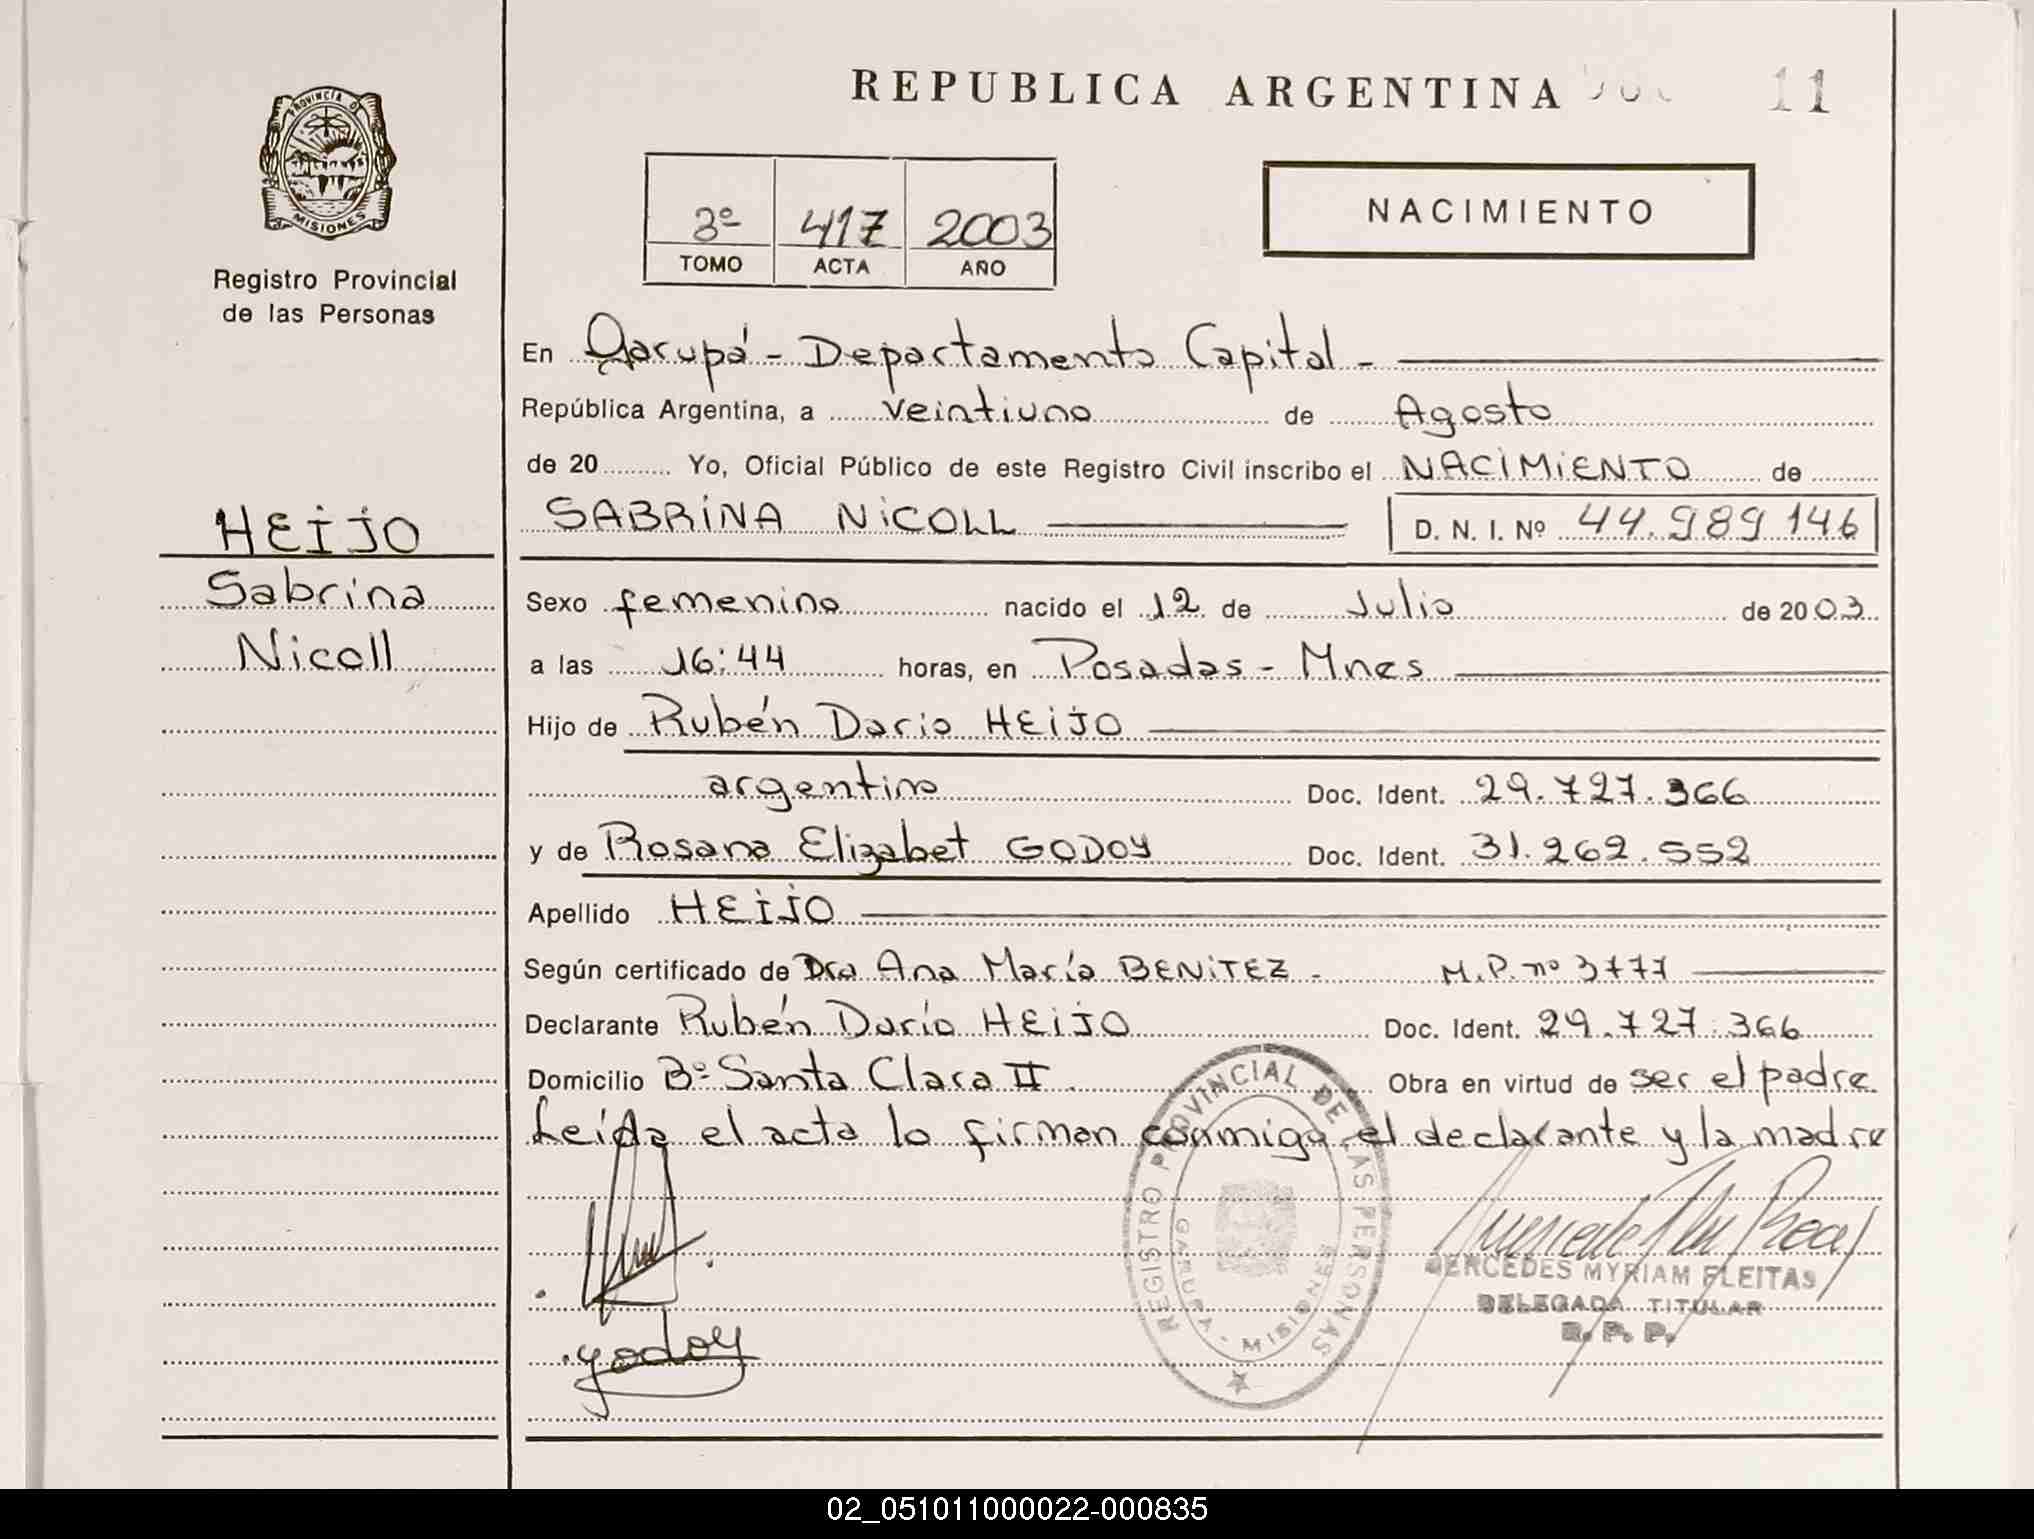 REPUBLICA ARGENTINA
11
PROVINCIA DE
MISIONES
Registro Provincial
de las Personas
3º 417 2003
TOMO ACTA AÑO
NACIMIENTO
En Garupá - Departamento Capital -
República Argentina, a veintiuno de Agosto
de 20 Yo, Oficial Público de este Registro Civil inscribo el NACIMIENTO de
SABRINA NICOLL D. N. I. Nº 44.989.146
HEIJO
Sabrina
Nicoll
Sexo femenino nacido el 12 de Julio de 2003
a las 16:44 horas, en Posadas - Mnes
Hijo de Rubén Dario HEIJO
argentino Doc. Ident. 29.727.366
y de Rosana Elizabet GODOY Doc. Ident. 31.262.552
Apellido HEIJO
Según certificado de Dra Ana María BENITEZ - M.P. nº 3777
Declarante Rubén Darío HEIJO Doc. Ident. 29.727.366
Domicilio Bº Santa Clara II Obra en virtud de ser el padre
Leida el acta lo firman conmigo el declarante y la madre
REGISTRO PROVINCIAL DE LAS PERSONAS
GARUPA - MISIONES
MERCEDES MYRIAM FLEITAS
DELEGADA TITULAR
R. P. P.
godoy
02_051011000022-000835